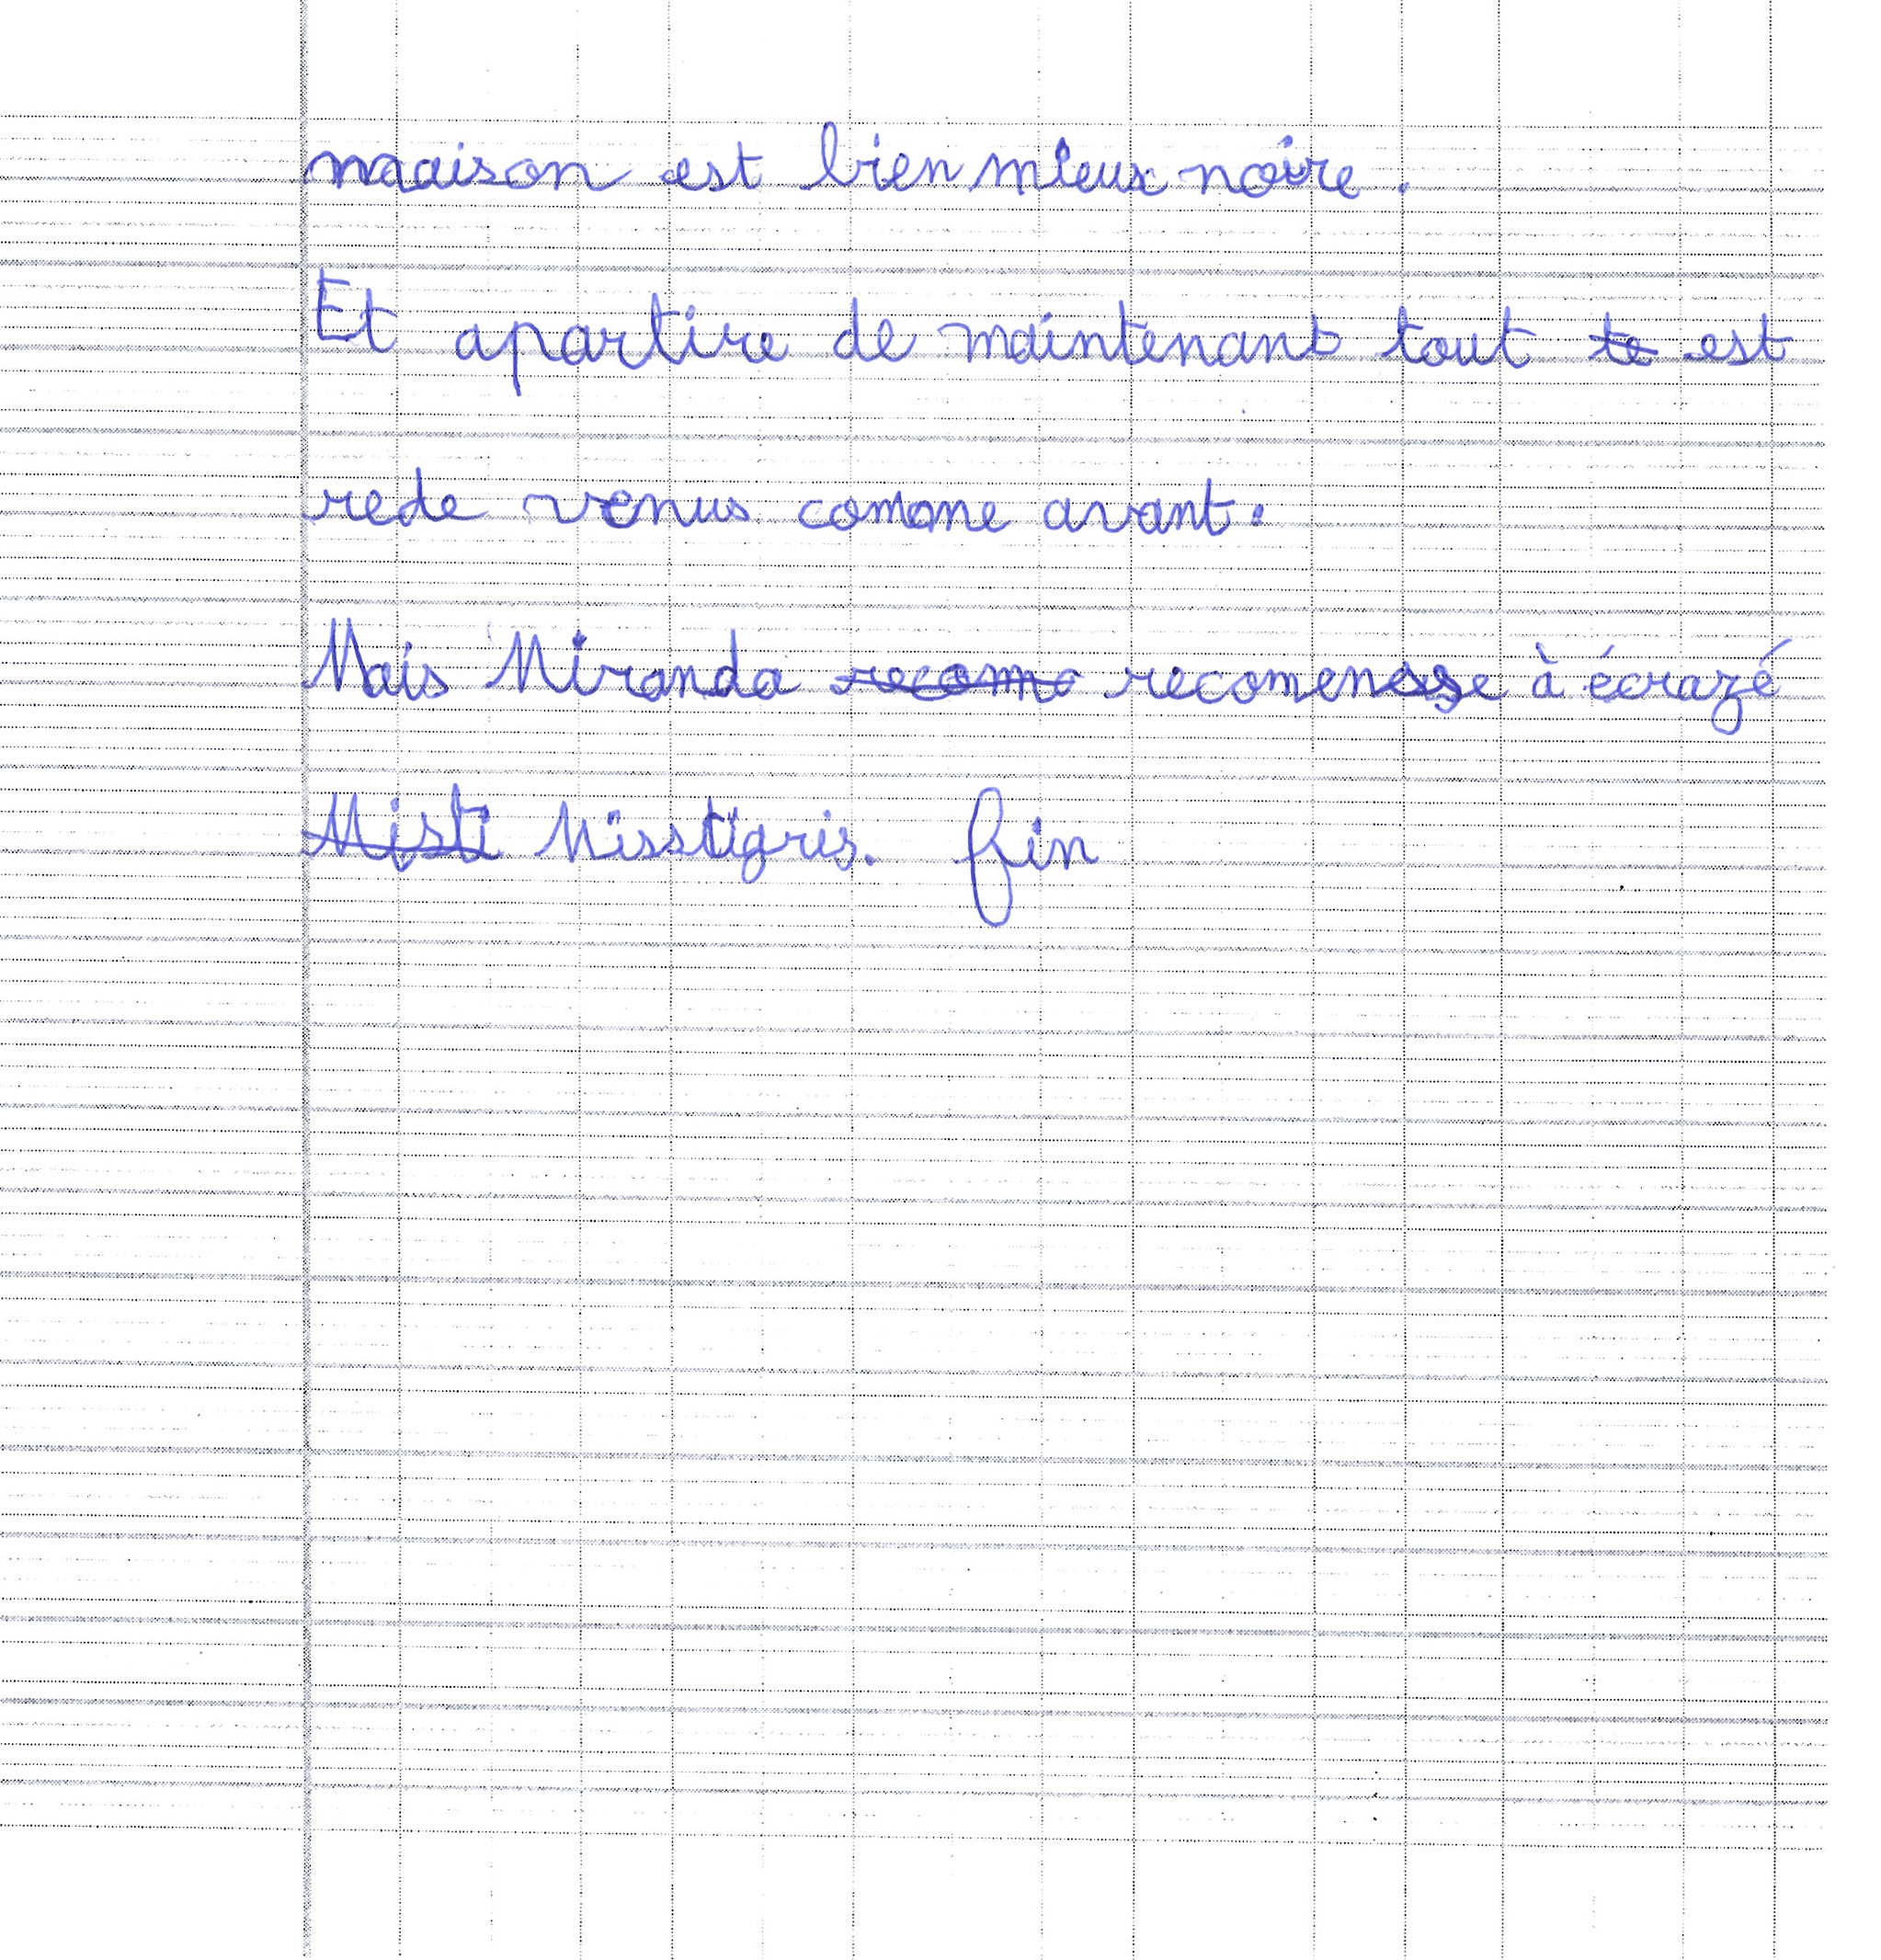 maison est bien mieux noire.
Et apartire de maintenant tout te est
rede venus comme avant.
Mais Miranda recome recomensse à écrazé
Misti Misstigris. fin